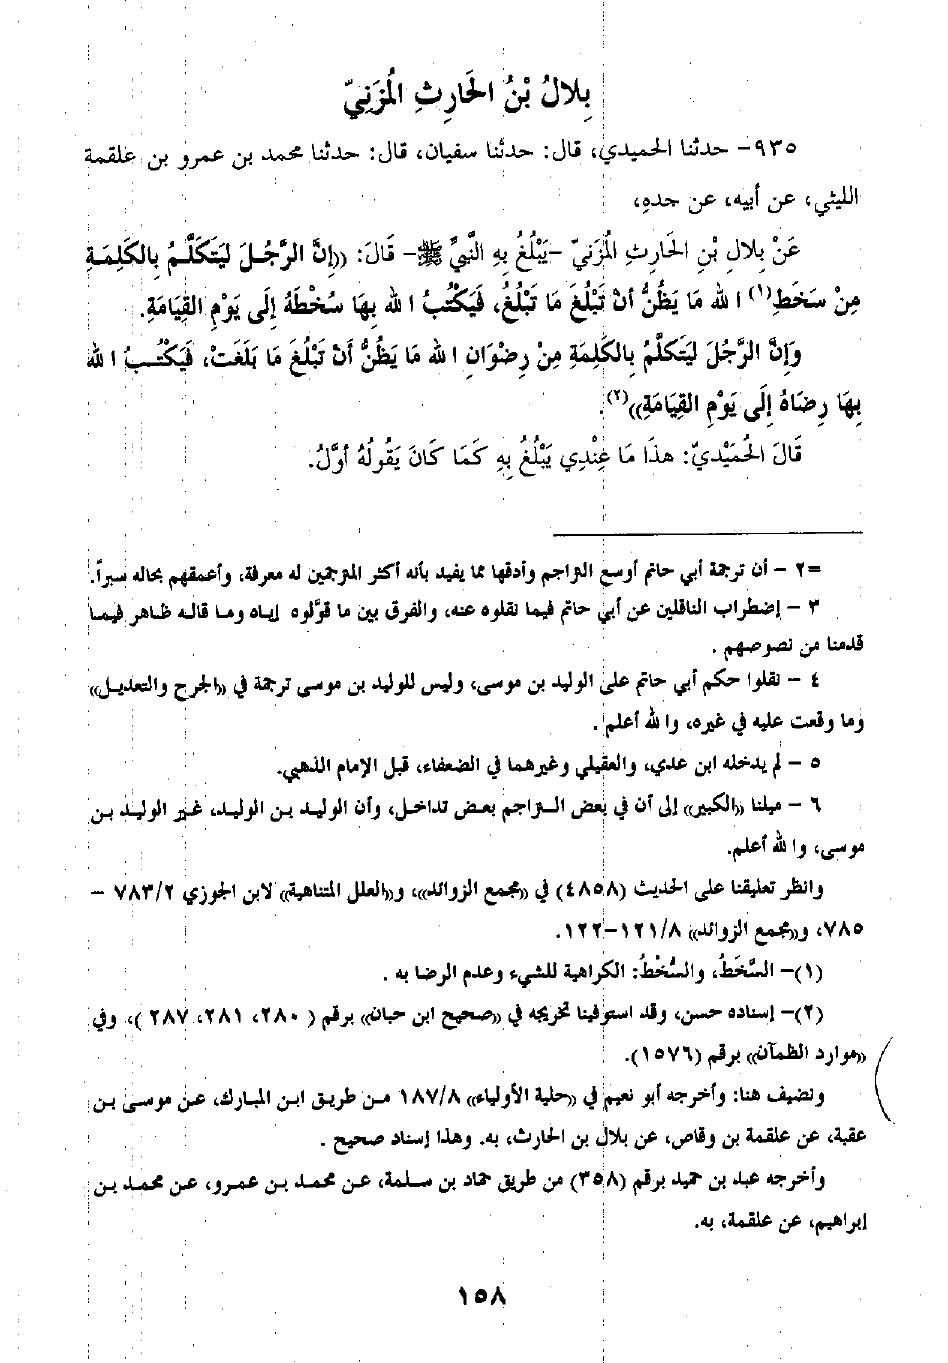 بِلالُ بْنُ الحَارِثِ المُزَنِيّ
٩٣٥- حدثنا الحميدي، قال: حدثنا سفيان، قال: حدثنا محمد بن عمرو بن علقمة
الليثي، عن أبيه، عن جده،
عَنْ بِلالِ بْنِ الحَارِثِ المُزَنِيّ -يَبْلُغُ بِهِ النَّبِيَّ ﷺ- قَالَ: ((إِنَّ الرَّجُلَ لَيَتَكَلَّمُ بِالكَلِمَةِ
مِنْ سَخَطِ(١) الله مَا يَظُنُّ أنْ تَبْلُغَ مَا تَبْلُغُ، فَيَكْتُبُ الله بِهَا سُخْطَهُ إِلَى يَوْمِ القِيَامَةِ.
وَإِنَّ الرَّجُلَ لَيَتَكَلَّمُ بِالكَلِمَةِ مِنْ رِضْوَانِ الله مَا يَظُنُّ أَنْ تَبْلُغَ مَا بَلَغَتْ، فَيَكْتُبُ الله
بِهَا رِضَاهُ إِلَى يَوْمِ القِيَامَةِ))(٢).
قَالَ الحُمَيْدِيّ: هذَا مَا عِنْدِي يَبْلُغُ بِهِ كَمَا كَانَ يَقُولُهُ أوَّلُ.
=٢ - أن ترجمة أبي حاتم أوسع التراجم وأدقها مما يفيد بأنه أكثر المترجمين له معرفة، وأعمقهم بحاله سبراً.
٣ - إضطراب الناقلين عن أبي حاتم فيما نقلوه عنه، والفرق بين ما قوّلوه إياه وما قاله ظاهر فيما
قدمنا من نصوصهم .
٤ - نقلوا حكم أبي حاتم على الوليد بن موسى، وليس للوليد بن موسى ترجمة في ((الجرح والتعديل))
وما وقعت عليه في غيره، والله أعلم .
٥ - لم يدخله ابن عدي، والعقيلي وغيرهما في الضعفاء، قبل الإمام الذهبي.
٦ - ميلنا ((الكبير)) إلى أن في بعض التراجم بعض تداخل، وأن الوليد بن الوليد، غير الوليد بن
موسى، والله أعلم.
وانظر تعليقنا على الحديث (٤٨٥٨) في ((مجمع الزوائد))، و((العلل المتناهية)) لابن الجوزي ٧٨٣/٢ -
٧٨٥، و((مجمع الزوائد)) ١٢١/٨-١٢٢.
(١)- السَّخَطُ، والسُّخْطُ: الكراهية للشيء وعدم الرضا به .
(٢)- إسناده حسن، وقد استوفينا تخريجه في ((صحيح ابن حبان)) برقم ( ٢٨٠، ٢٨١، ٢٨٧ )، وفي
((موارد الظمآن)) برقم (١٥٧٦).
ونضيف هنا: وأخرجه أبو نعيم في ((حلية الأولياء)) ١٨٧/٨ من طريق ابن المبارك، عن موسى بن
عقبة، عن علقمة بن وقاص، عن بلال بن الحارث، به. وهذا إسناد صحيح .
وأخرجه عبد بن حميد برقم (٣٥٨) من طريق حماد بن سلمة، عن محمد بن عمرو، عن محمد بن
إبراهيم، عن علقمة، به.
١٥٨